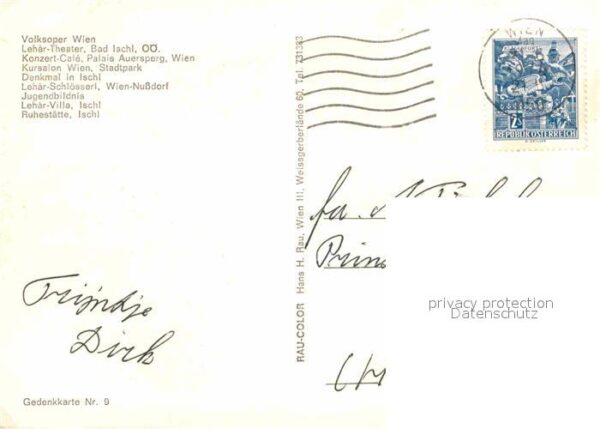 Volksoper Wien
Lehár-Theater, Bad Ischl, OÖ.
Konzert-Café, Palais Auersperg, Wien
Kursalon Wien, Stadtpark
Denkmal in Ischl
Lehár-Schlösserl, Wien-Nußdorf
Jugendbildnis
Lehár-Villa, Ischl
Ruhestätte, Ischl
Trijntje
Dirk
Gedenkkarte Nr. 9
RAU-COLOR Hans H. Rau, Wien III, Weissgerberlände 60, Tel. 731383
WIEN
REPUBLIK ÖSTERREICH
fa.
Prin
privacy protection
Datenschutz